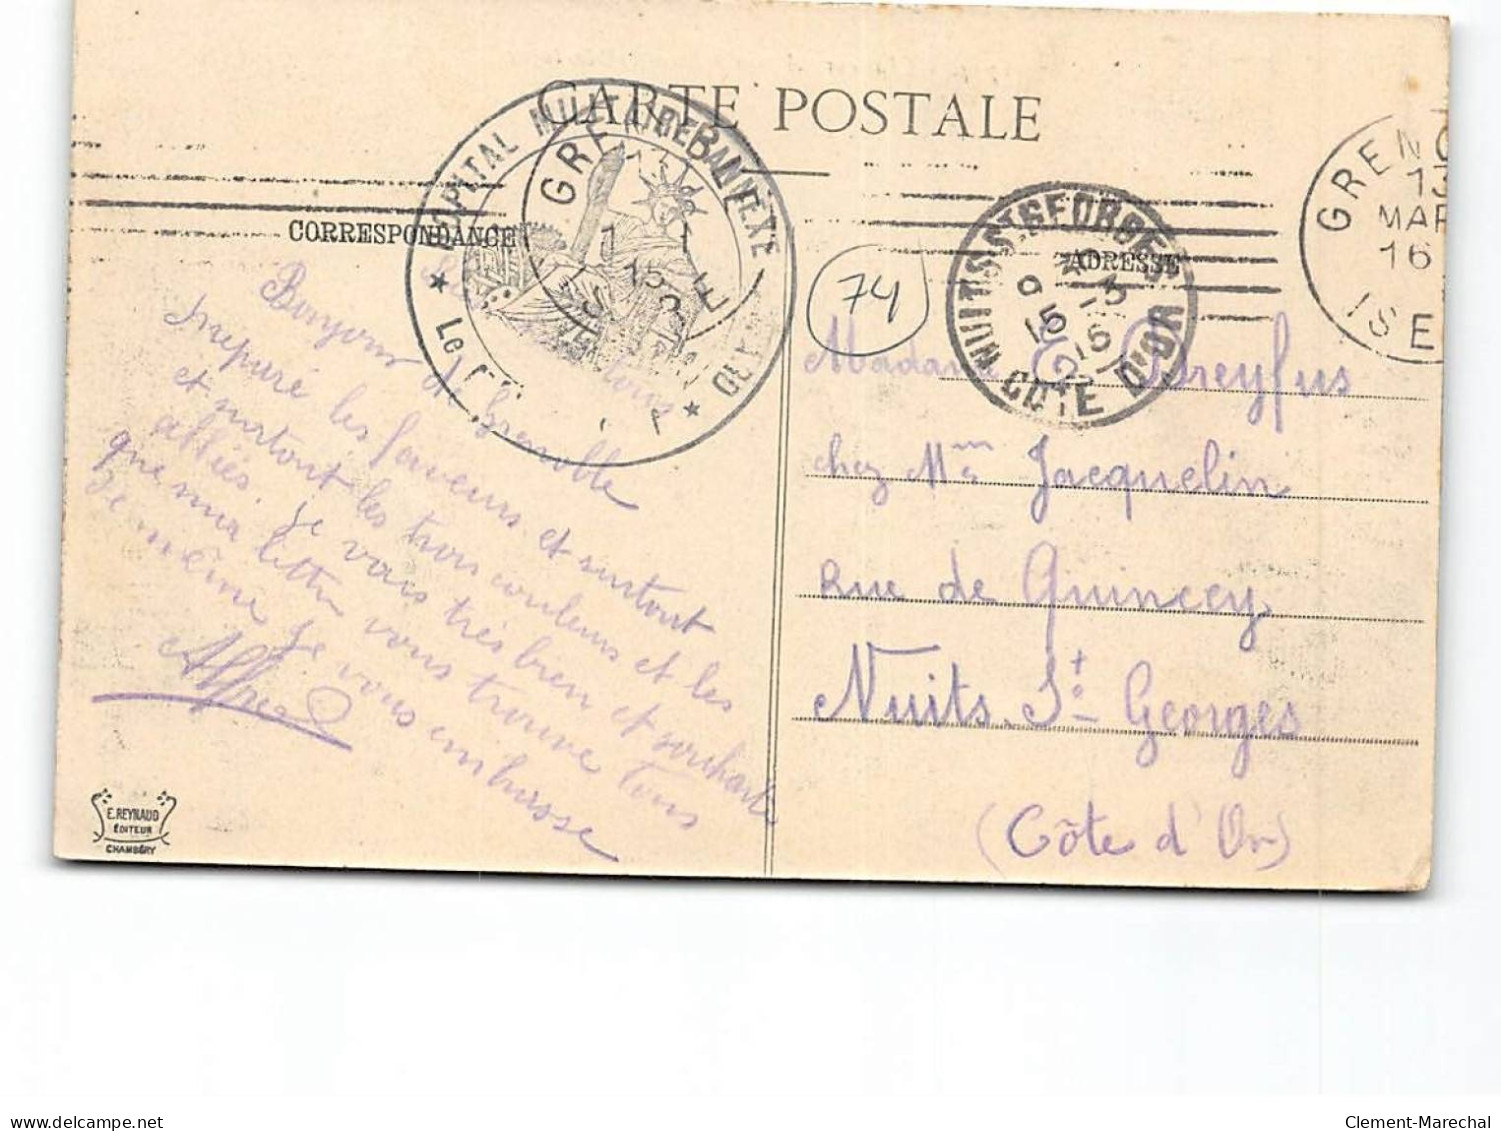 CARTE POSTALE
HOPITAL MILITAIRE
GRE
15
GRENO
13
MAR
16
ISE
NUITS-ST-GEORGES
15 - 3
16
COTE D'OR
CORRESPONDANCE
ADRESSE
74
Bonjour de Grenoble
les faveurs et surtout
et surtout les trois couleurs et les
alliés. Je vais très bien et souhaite
que ma lettre vous trouve tous
de même Je vous embrasse
Alfred
Madame E. Dreyfus
chez Mme Jacquelin
Rue de Quincey
Nuits St Georges
(Côte d'Or)
E. REYNAUD
ÉDITEUR
CHAMBÉRY
Clement-Marechal